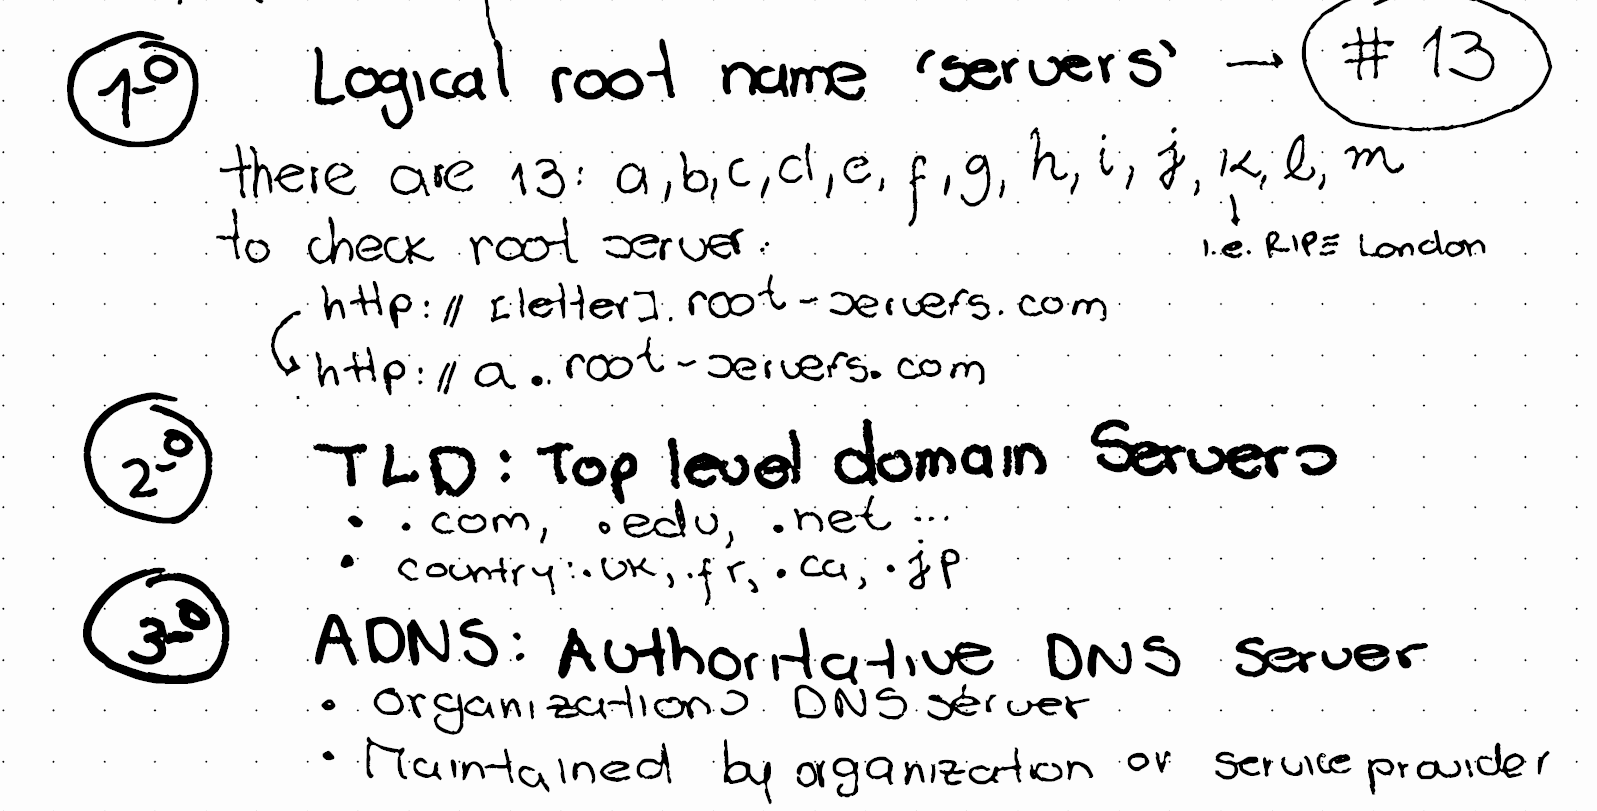 1º Logical root name 'servers' → # 13
there are 13: a, b, c, d, e, f, g, h, i, j, k, l, m
to check root server:
i.e. RIPE London
http:// [letter]. root-servers. com
http:// a . root-servers. com
2º TLD: Top level domain Servers
• .com, .edu, .net ...
• country: .uk, .fr, .ca, .jp
3º ADNS: Authoritative DNS Server
• organizations DNS server
• Maintained by organization or service provider